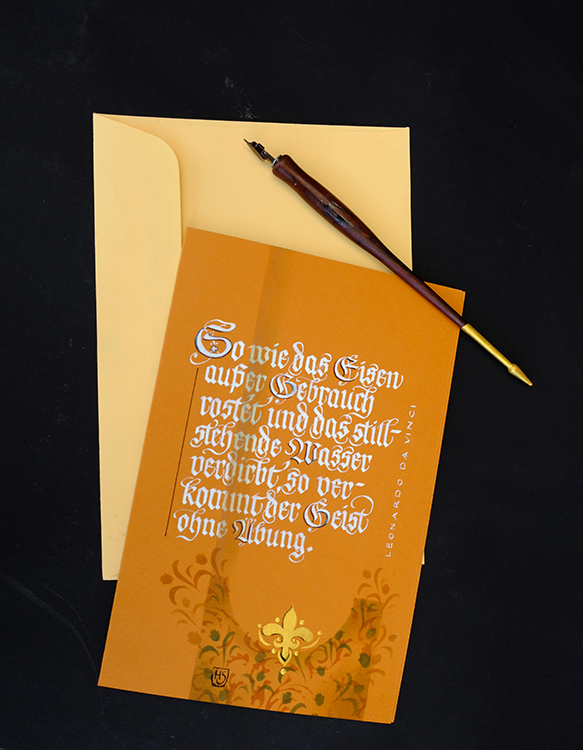 So wie das Eisen
außer Gebrauch
rostet und das still-
stehende Wasser
verdirbt, so ver-
kommt der Geist
ohne Übung.
LEONARDO DA VINCI
HS